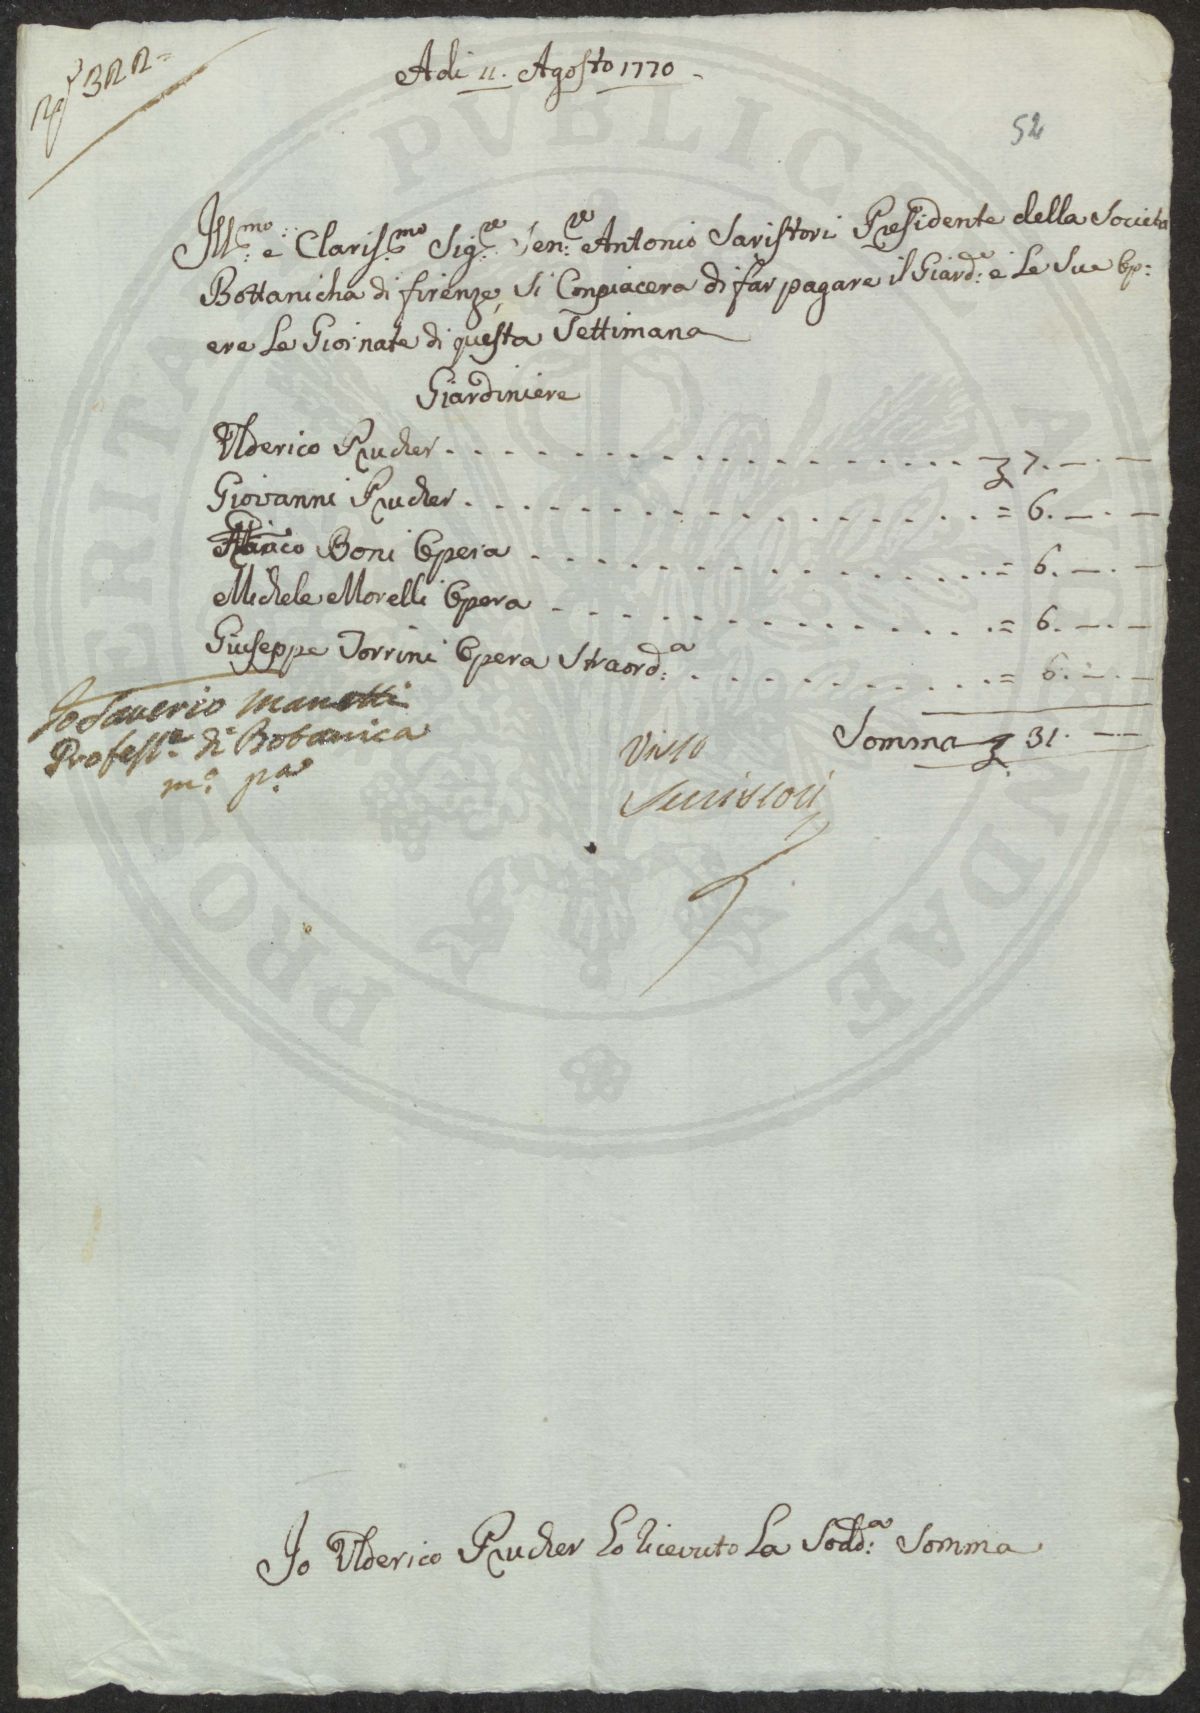 322=
Adi 11. Agosto 1770
52
Ill:mo e Claris:mo Sig:re Sen:re Antonio Saristori Presidente della Societa
Bottanicha di firenze, Si Conpiacera di far pagare il Giard:e e Le Sue Op:
ere Le Giornate di questa Settimana
Giardiniere
Ulderico Prucher 7.
Giovanni Prucher = 6.
Boni Opera = 6.
Michele Morelli Opera = 6.
Giuseppe Torrini Opera Straord:a = 6.
Somma 31.
Io Saverio Manetti
Profess:e di Botanica
m:o p:a
Visto
Serristori
Io Ulderico Prucher ho ricevuto La Sodd:a Somma
PROSPERITATI PVBLICAE AVGENDAE